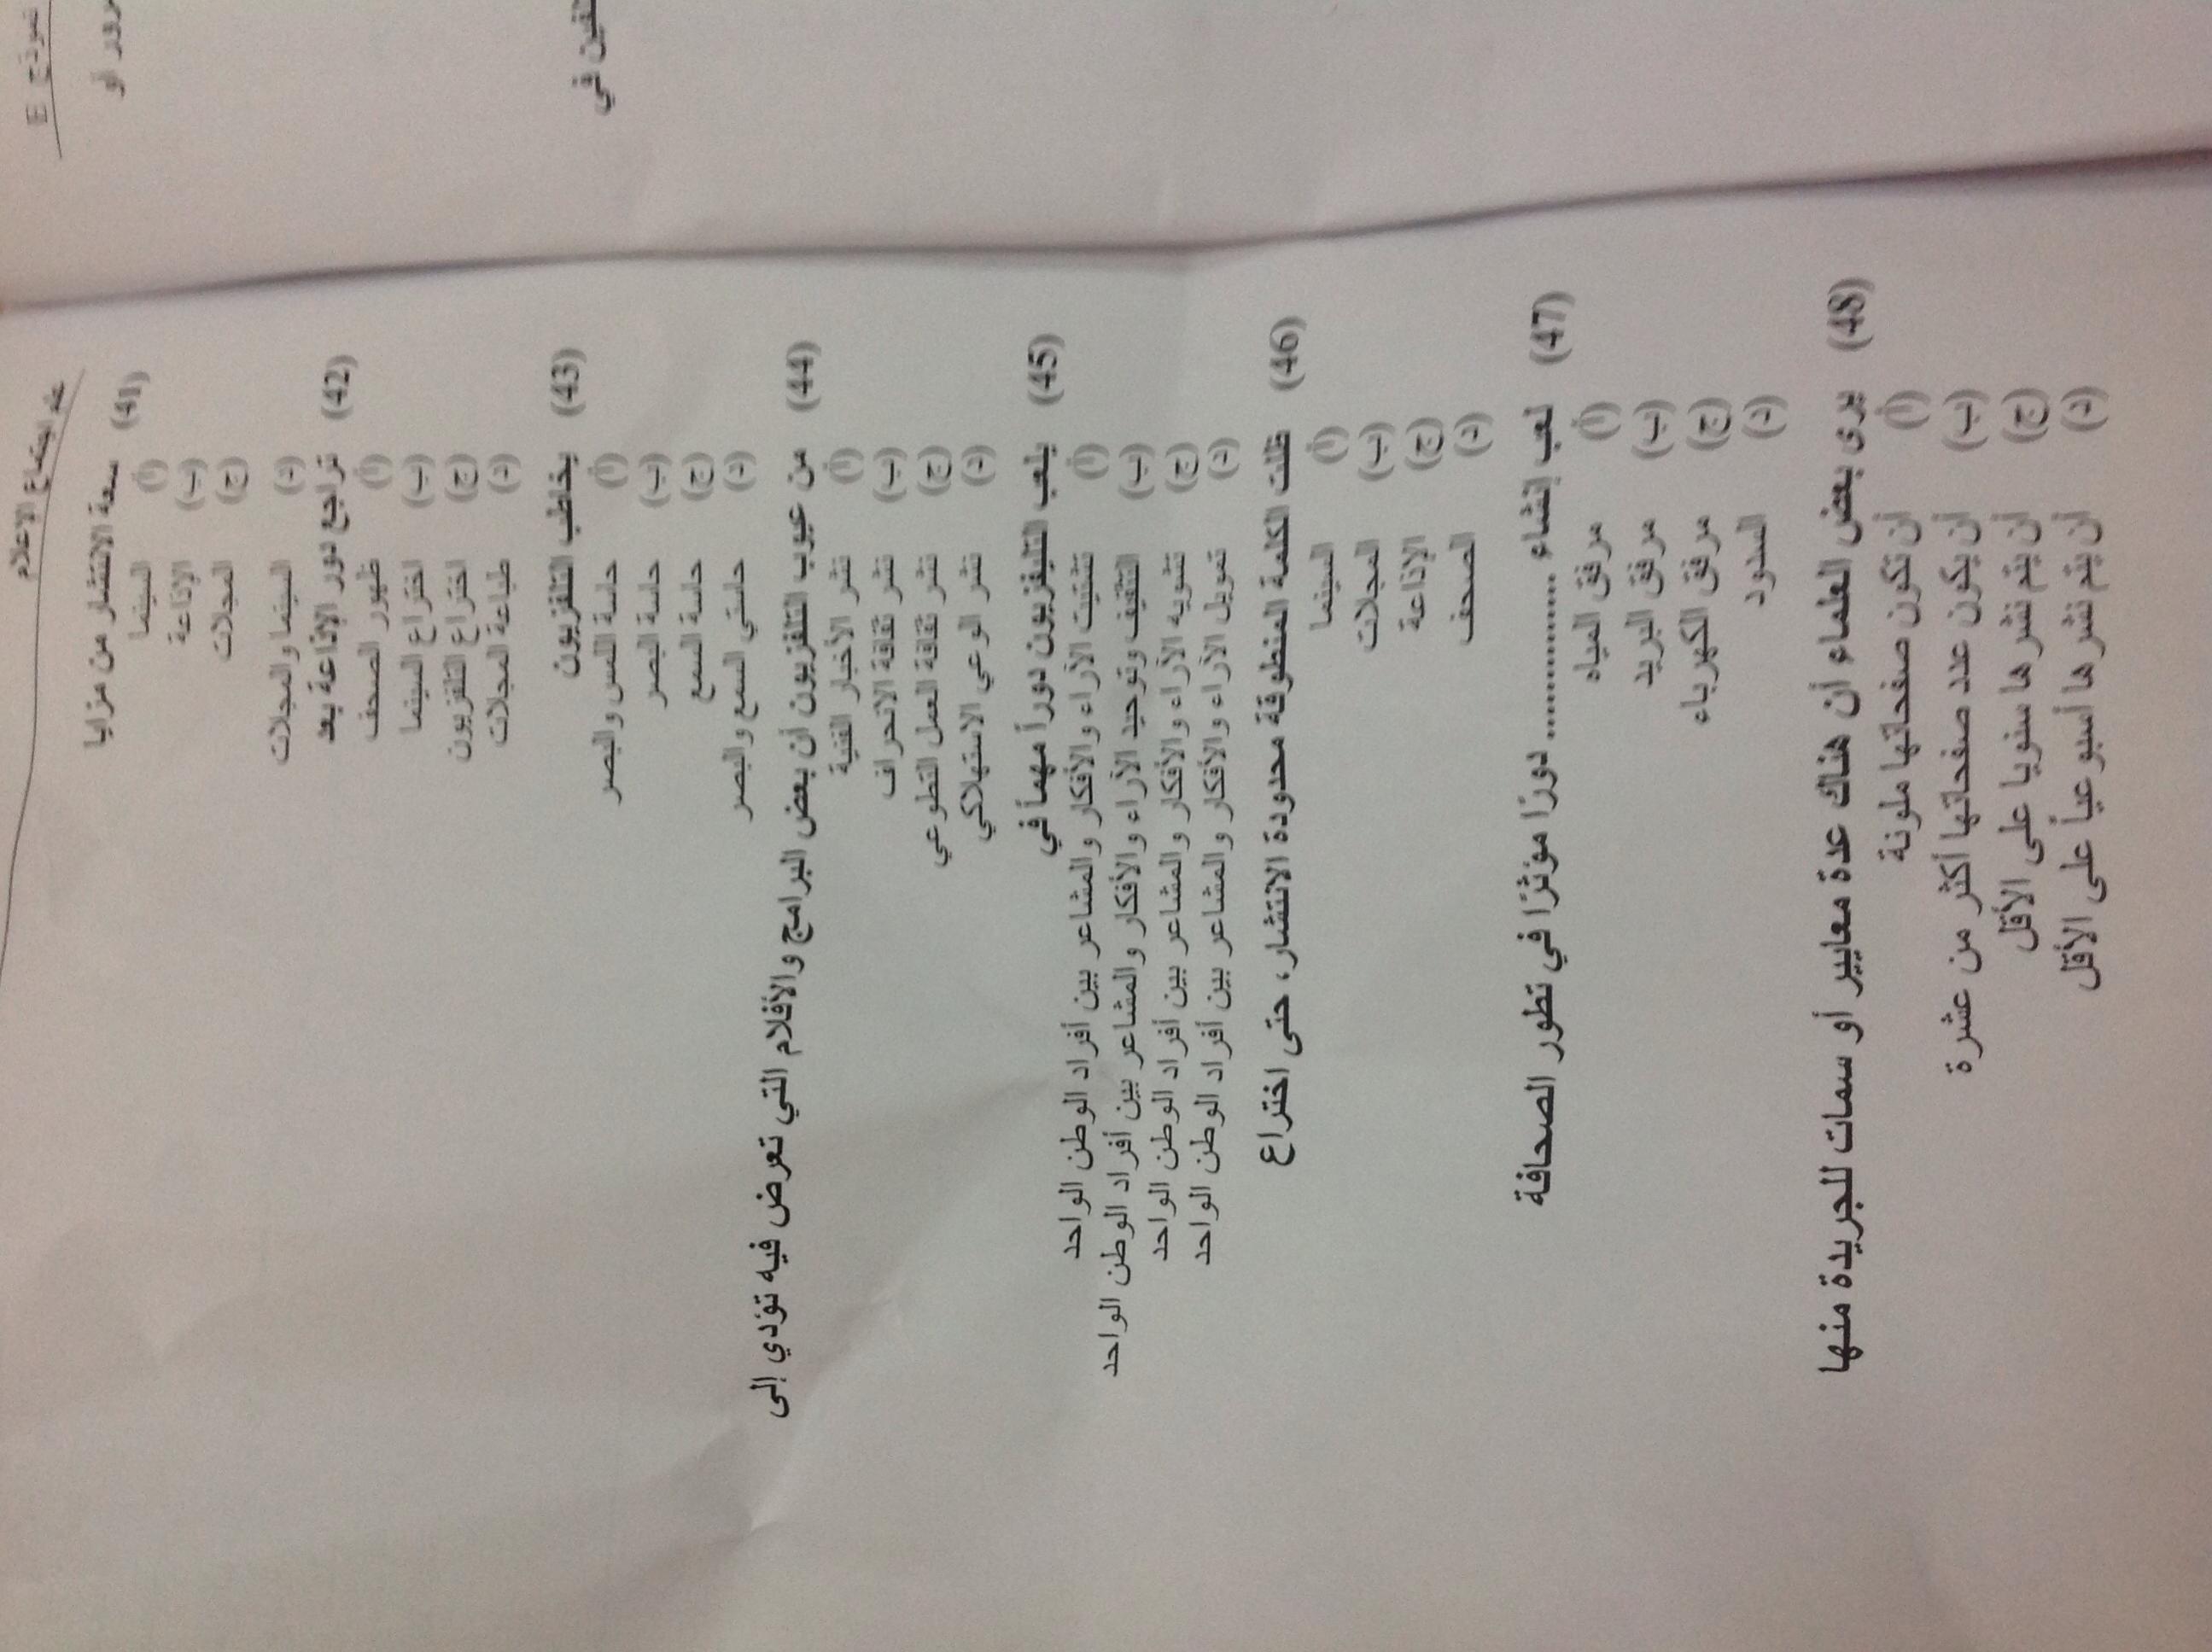 علم اجتماع الاعلام
(41) سعة الانتشار من مزايا
(أ) السينما
(ب) الإذاعة
(ج) المجلات
(د) السينما والمجلات
(42) تراجع دور الإذاعة بعد
(أ) ظهور الصحف
(ب) اختراع السينما
(ج) اختراع التلفزيون
(د) طباعة المجلات
(43) يخاطب التلفزيون
(أ) حاسة اللمس والبصر
(ب) حاسة البصر
(ج) حاسة السمع
(د) حاستي السمع والبصر
(44) من عيوب التلفزيون أن بعض البرامج والأفلام التي تعرض فيه تؤدي إلى
(أ) نشر الأخبار الفنية
(ب) نشر ثقافة الانحراف
(ج) نشر ثقافة العمل التطوعي
(د) نشر الوعي الاستهلاكي
(45) يلعب التليفزيون دوراً مهماً في
(أ) تشتيت الآراء والأفكار والمشاعر بين أفراد الوطن الواحد
(ب) التثقيف وتوحيد الآراء والأفكار والمشاعر بين أفراد الوطن الواحد
(ج) تشويه الآراء والأفكار والمشاعر بين أفراد الوطن الواحد
(د) تمويل الآراء والأفكار والمشاعر بين أفراد الوطن الواحد
(46) ظلت الكلمة المنطوقة محدودة الانتشار، حتى اختراع
(أ) السينما
(ب) المجلات
(ج) الإذاعة
(د) الصحف
(47) لعب إنشاء .............. دورًا مؤثرًا في تطور الصحافة
(أ) مرفق المياه
(ب) مرفق البريد
(ج) مرفق الكهرباء
(د) السدود
(48) يرى بعض العلماء أن هناك عدة معايير أو سمات للجريدة منها
(أ) أن تكون صفحاتها ملونة
(ب) أن يكون عدد صفحاتها أكثر من عشرة
(ج) أن يتم نشرها سنويا على الأقل
(د) أن يتم نشرها أسبوعياً على الأقل
نموذج E